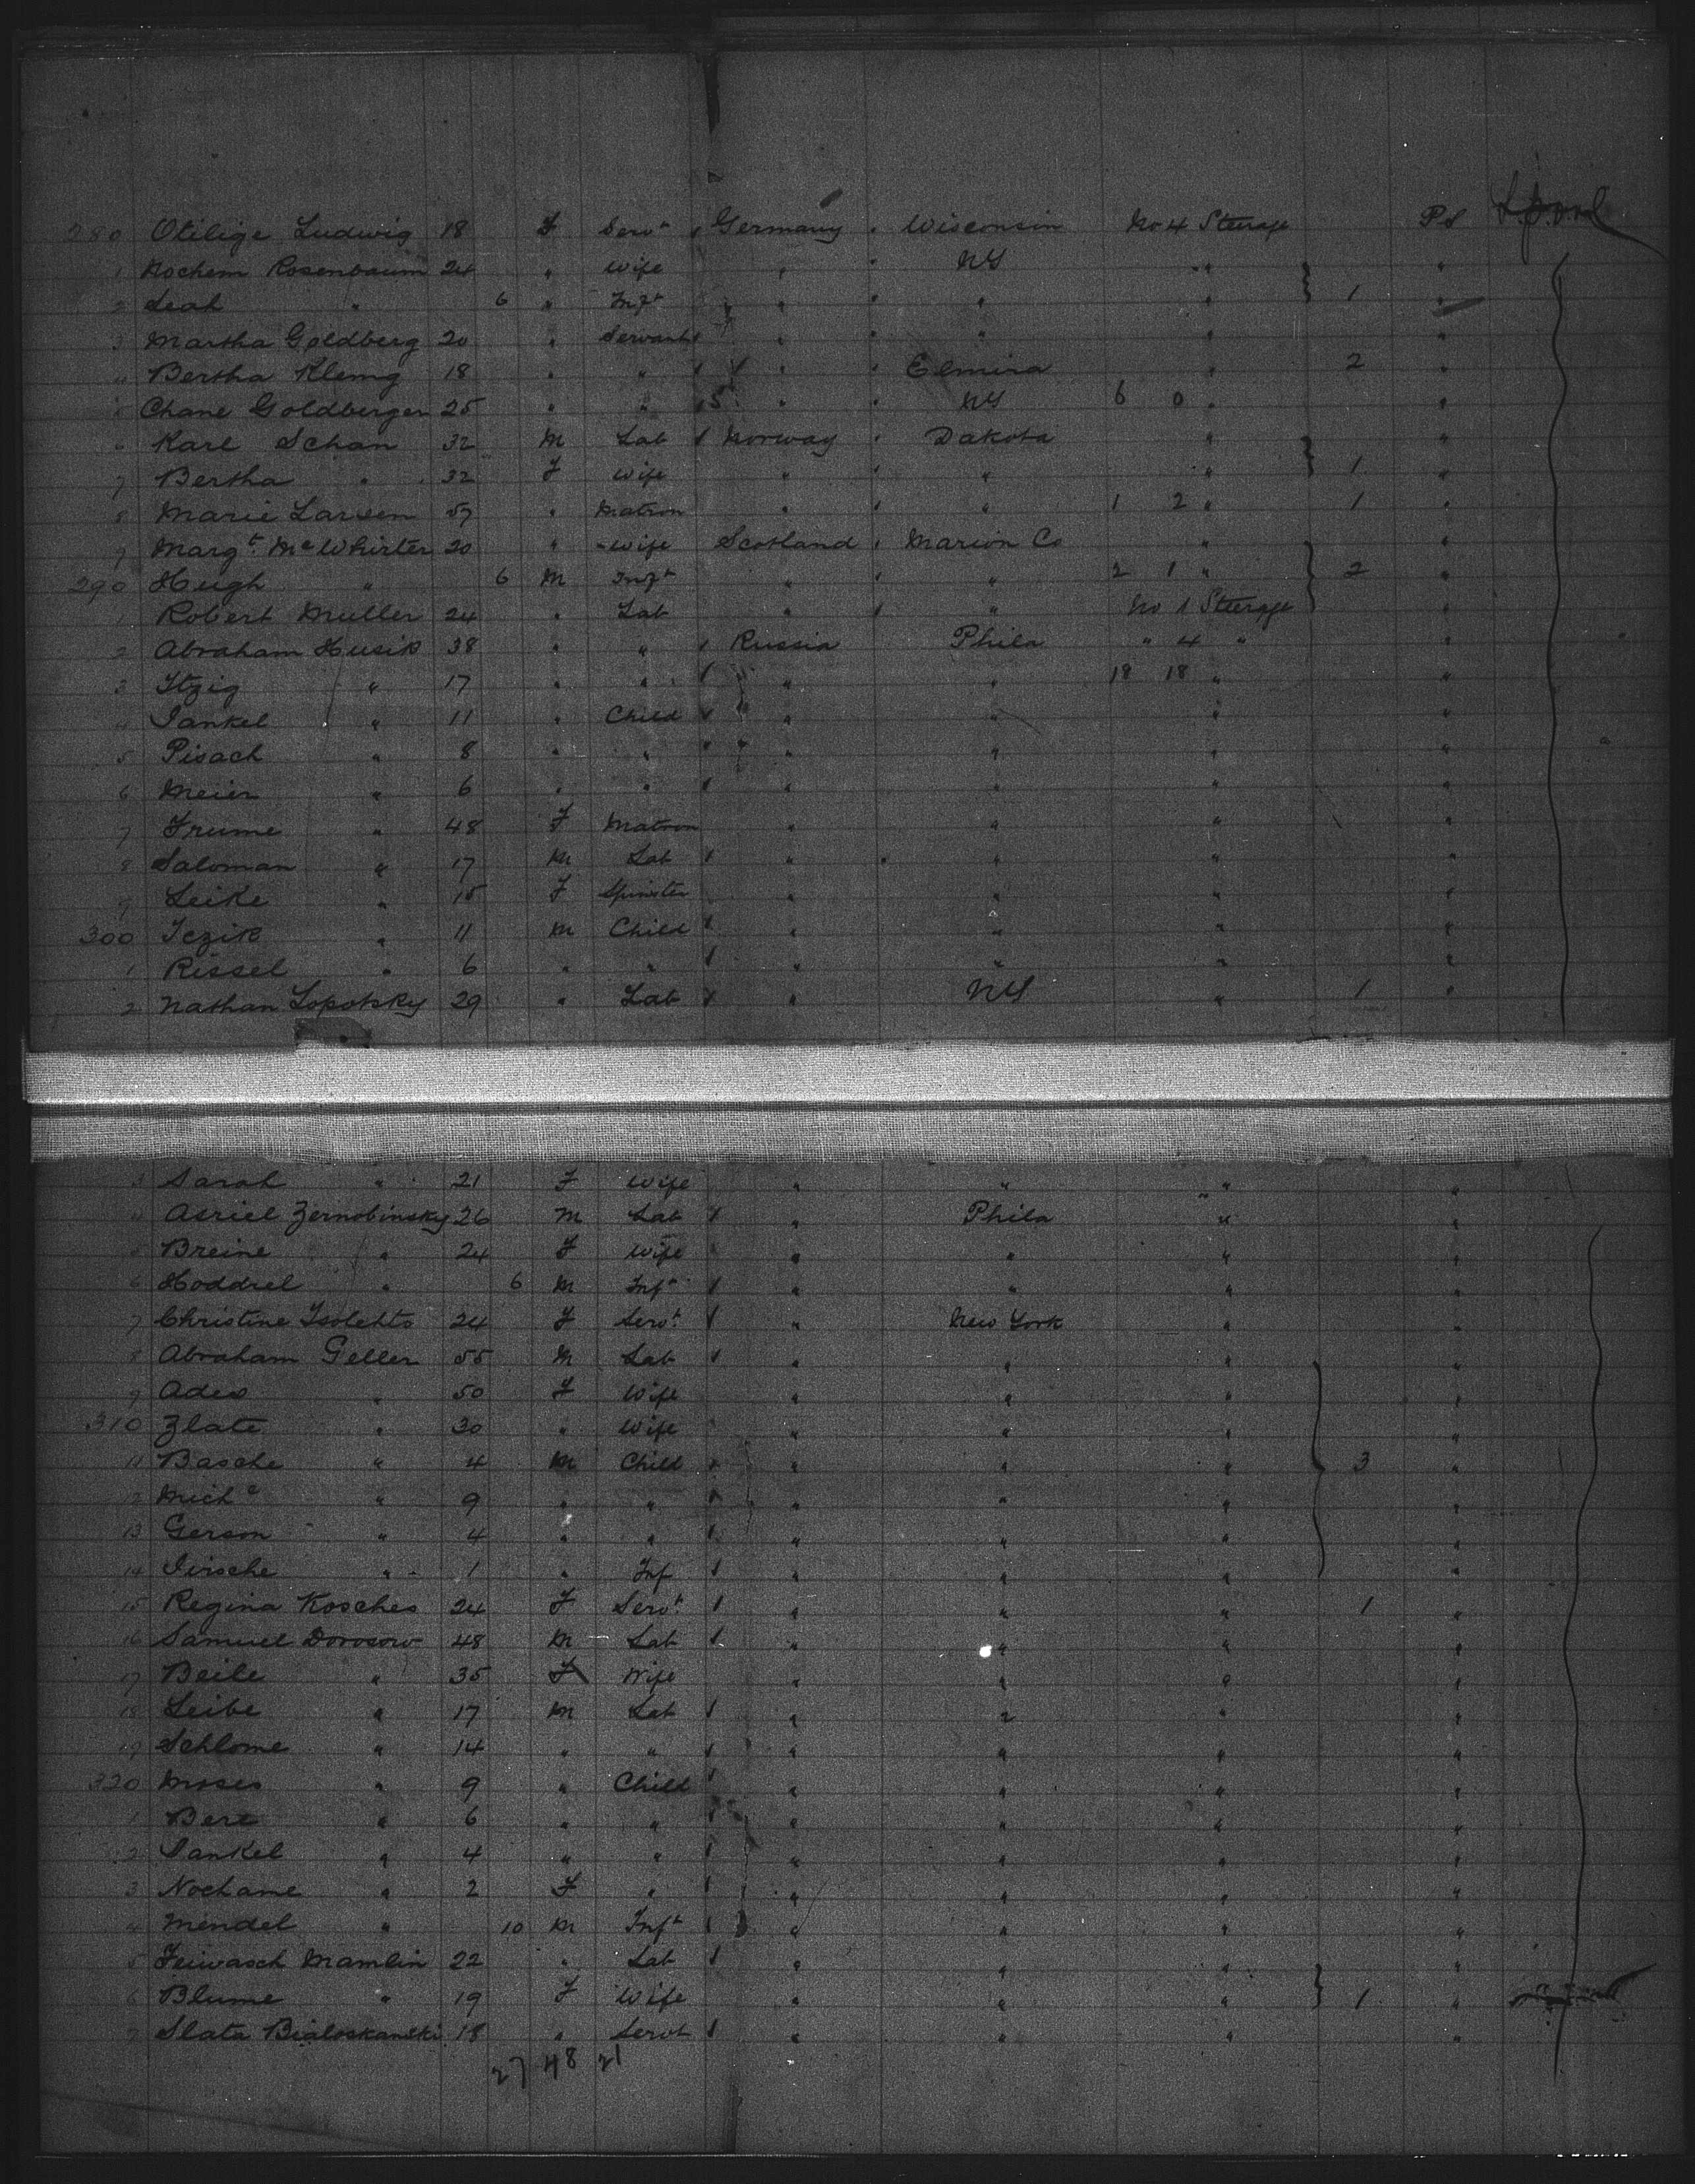 280 Otilige Ludwig 18 F Servt Germany Wisconsin No 4 Steerage PS
1 Nochem Rosenbaum 24 " Wife " NY " "
2 Leah " 6 " Inft " " " } 1 "
3 Martha Goldberg 20 " Servant " " " "
4 Bertha Klemg 18 " " " Elmira " 2 "
5 Chane Goldberger 25 " " " NY 6 0 " "
6 Karl Schan 32 M Lab Norway Dakota " "
7 Bertha " 32 F Wife " " " } 1 "
8 Marie Larsen 57 " Matron " " 1 2 " 1 "
9 Margt. McWhirter 20 " Wife Scotland Marion Co " "
290 Hugh " 6 M Inft " " 2 1 " } 2 "
1 Robert Muller 24 " Lab " " No 1 Steerage "
2 Abraham Husik 38 " " Russia Phila " 4 " "
3 Itzig " 17 " " " " 19 18 " "
4 Jankel " 11 " Child " " " "
5 Pisach " 8 " " " " " "
6 Meier " 6 " " " " " "
7 Frume " 48 F Matron " " " "
8 Saloman " 17 M Lab " " " "
9 Leike " 15 F Spinster " " " "
300 Iczik " 11 M Child " " " "
1 Rissel " 6 " " " " " "
2 Nathan Lopotsky 29 " Lab " NY " 1 "
3 Sarah " 21 F Wife " " " "
4 Asriel Zernobinsky 26 M Lab " Phila " "
5 Breine " 24 F Wife " " " "
6 Hoddrel " 6 M Inft " " " "
7 Christine Isolehto 24 F Servt. " New York " "
8 Abraham Geller 55 M Lab " " " "
9 Ades " 50 F Wife " " " "
310 Zlate " 30 " Wife " " " "
11 Basche " 4 M Child " " " } 3 "
12 Micha " 9 " " " " " "
13 Gerson " 4 " " " " " "
14 Hirsche " 1 " Inf " " " "
15 Regina Kosches 24 F Servt. " " " 1 "
16 Samuel Dorosow 48 M Lab " " " "
17 Beile " 35 F Wife " " " "
18 Leibe " 17 M Lab " " " "
19 Schlome " 14 " " " " " "
320 Moses " 9 " Child " " " "
1 Bere " 6 " " " " " "
2 Jankel " 4 " " " " " "
3 Nochame " 2 F " " " " "
4 Mendel " 10 M Inft " " " "
5 Feiwasch Mamlin 22 " Lab " " " "
6 Blume " 19 F Wife " " " } 1 "
7 Slata Bialoskanski 18 " Servt " " " "
27 48 21